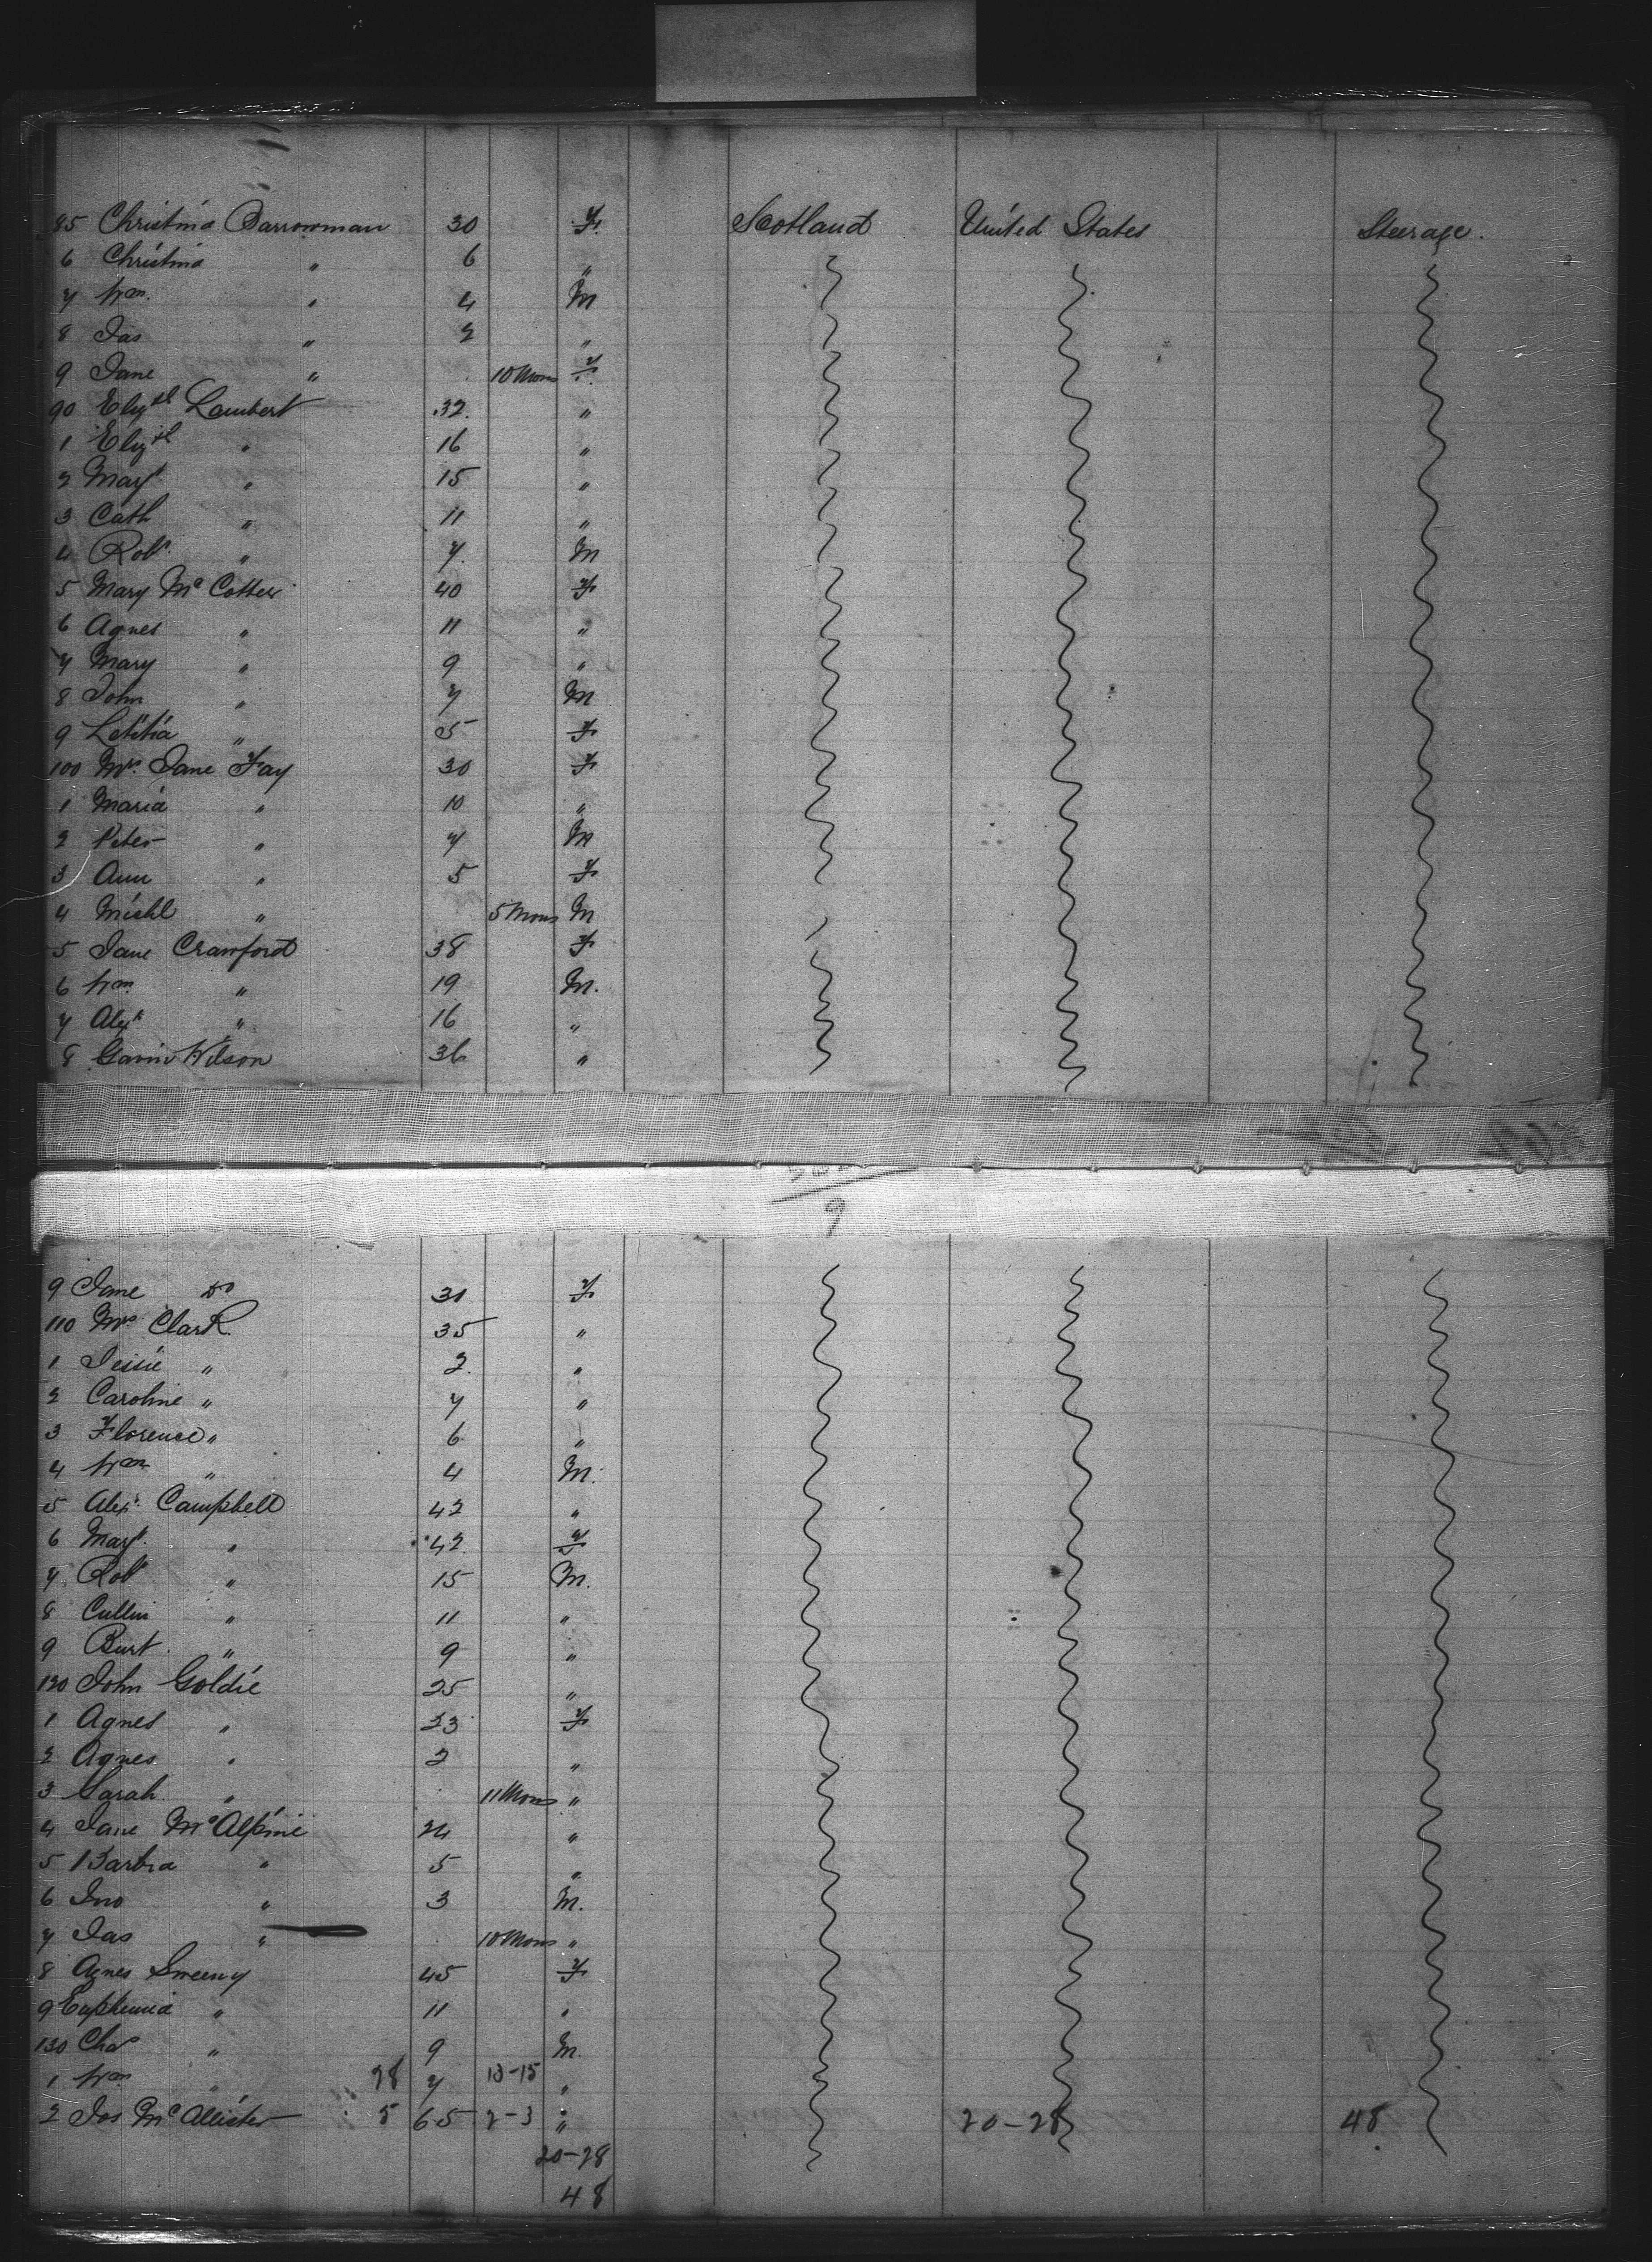 85 Christina Barrowman 30 F. Scotland United States Steerage.
6 Christina " 6 "
7 Wm. " 4 M
8 Jas " 2 "
9 Jane " 10 Mons F.
90 Elizth Lambert 32 "
1 Elizth " 16 "
2 Margt " 15 "
3 Cath " 11 "
4 Robt. " 7 M
5 Mary Mc 40 F
6 Agnes " 11 "
7 Mary " 9 "
8 John " 7 M
9 Letitia " 5 F
100 Mrs. Jane Fay 30 F
1 Maria " 10 "
2 Peter " 7 M
3 Ann " 5 F
4 Michl " 5 Mons M
5 Jane Crawford 38 F
6 Wm " 19 M.
7 Alexr " 16 "
8 Gavin Wilson 36 "
9
9 Jane Do 31 F
110 Mrs Clark 35 "
1 Jessie " 2 "
2 Caroline " 7 "
3 Florence " 6 "
4 Wm " 4 M.
5 Alexr. Campbell 42 "
6 Margt. " 42 F
7 Robt " 15 M.
8 " 11 "
9 Burt " 9 "
120 John Goldie 25 "
1 Agnes " 23 F
2 Agnes " 2 "
3 Sarah " 11 Mons "
4 Jane McAlpine 24 "
5 Barbra " 5 "
6 Jno " 3 M.
7 Jas " 10 Mons "
8 Agnes Sweeny 45 F
9 Euphemia " 11 "
130 Chas " 9 M.
1 Wm " 28 7 13-15 "
2 Jas McAllister 5 65 2-3 " 20-28 48
20-28
48